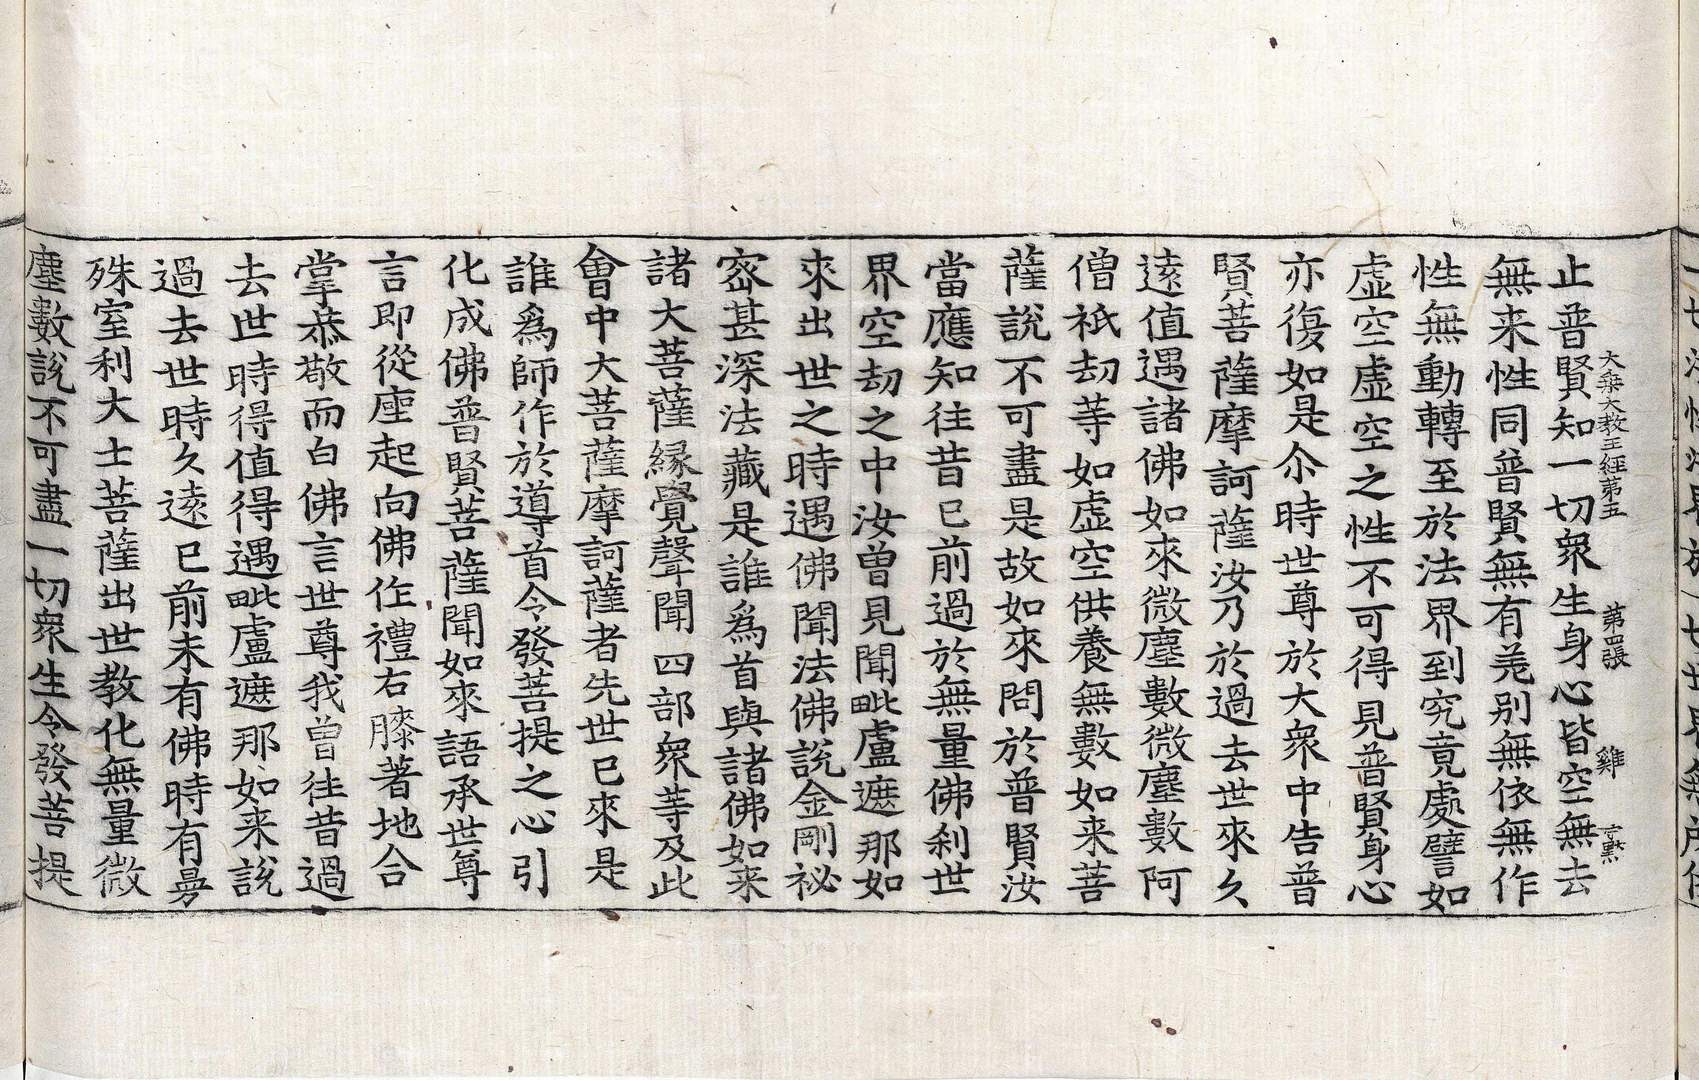 大乗大教王經第五 第四張 雞 言㸃
止普賢知一切衆生身心皆空無去
無来性同普賢無有羗別無依無作
性無動轉至於法界到究竟處譬如
虛空虛空之性不可得見普賢身心
亦復如是尒時世尊於大衆中告普
賢菩薩摩訶薩汝乃於過去世來久
逺值遇諸佛如來微塵數微塵數阿
僧祇刼等如虛空供養無數如来菩
薩說不可盡是故如來問於普賢汝
當應知往昔已前過於無量佛刹世
界空刼之中汝曾見聞毗盧遮那如
來出世之時遇佛聞法佛說金剛祕
宻甚深法藏是誰爲首與諸佛如来
諸大菩薩緣覺聲聞四部衆等及此
會中大菩薩摩訶薩者先世已來是
誰爲師作於導首令發菩提之心引
化成佛普賢菩薩聞如來語承世尊
言即從座起向佛作禮右膝著地合
掌恭敬而白佛言世尊我曾往昔過
去世時得值得遇毗盧遮那如来說
過去世時久逺已前未有佛時有曼
殊室利大士菩薩出世教化無量微
塵數說不可盡一切衆生令發菩提